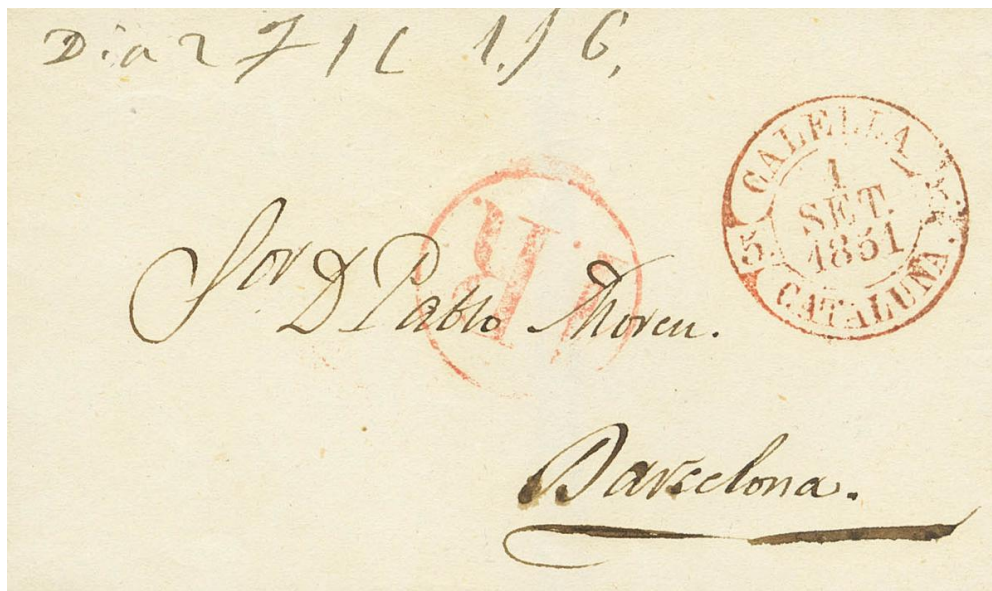 Dia 2
CALELLA
1
SET.
1851
5
CATALUÑA.
Sor D Pablo Moreu.
Barcelona.